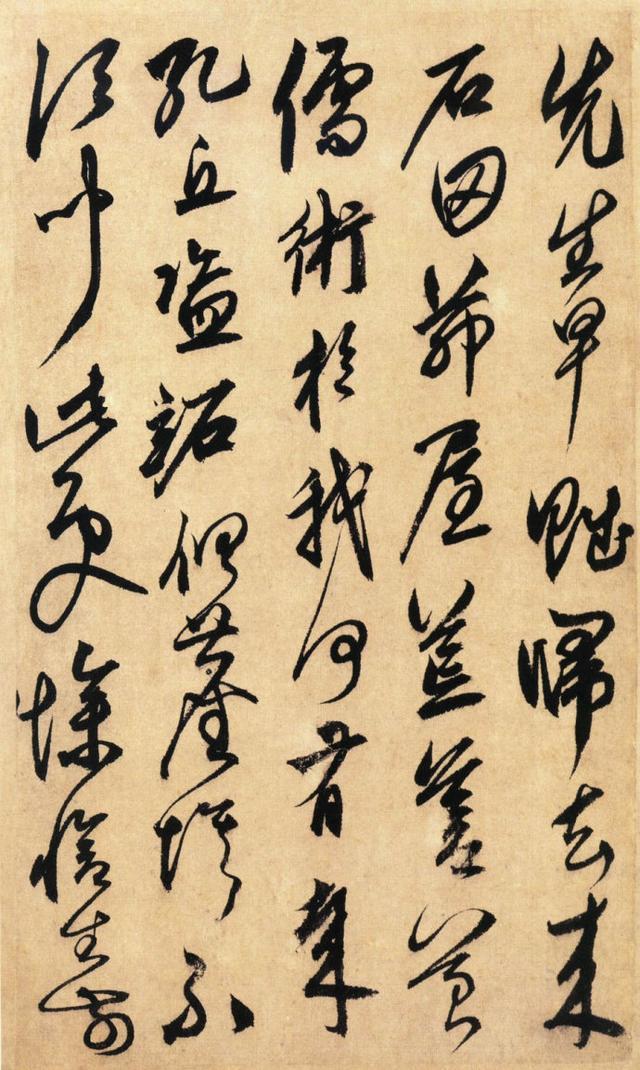 先生早賦歸去来
石田茅屋荒蒼苔
儒術於我何有哉
孔丘盗跖俱塵埃不
須聞此意慘愴生前